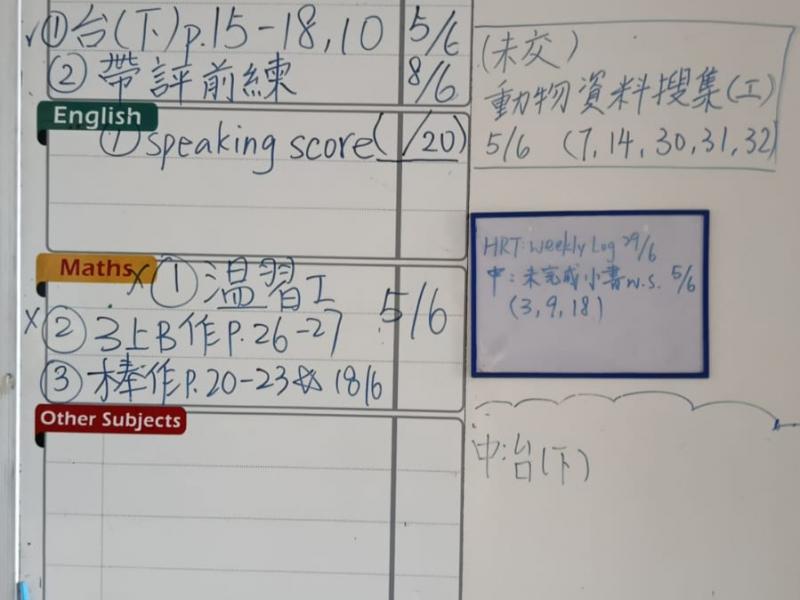 ✓①台(下)p.15-18,10 5/6
②帶評前練 8/6
English
①speaking score( /20)
Maths
X①溫習工 5/6
X②3上B作P.26-27
③棒作P.20-23 18/6
Other Subjects
(未交)
動物資料搜集(工)
5/6 (7,14,30,31,32)
HRT:weekly Log 29/6
中:未完成小書w.s. 5/6
(3,9,18)
中:台(下)